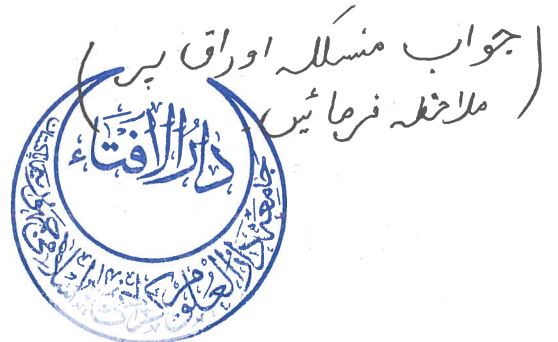 (جواب منسلکہ اوراق پر
ملاحظہ فرمائیں)
دارُ الافتَاء
جامعہ دارالعلوم